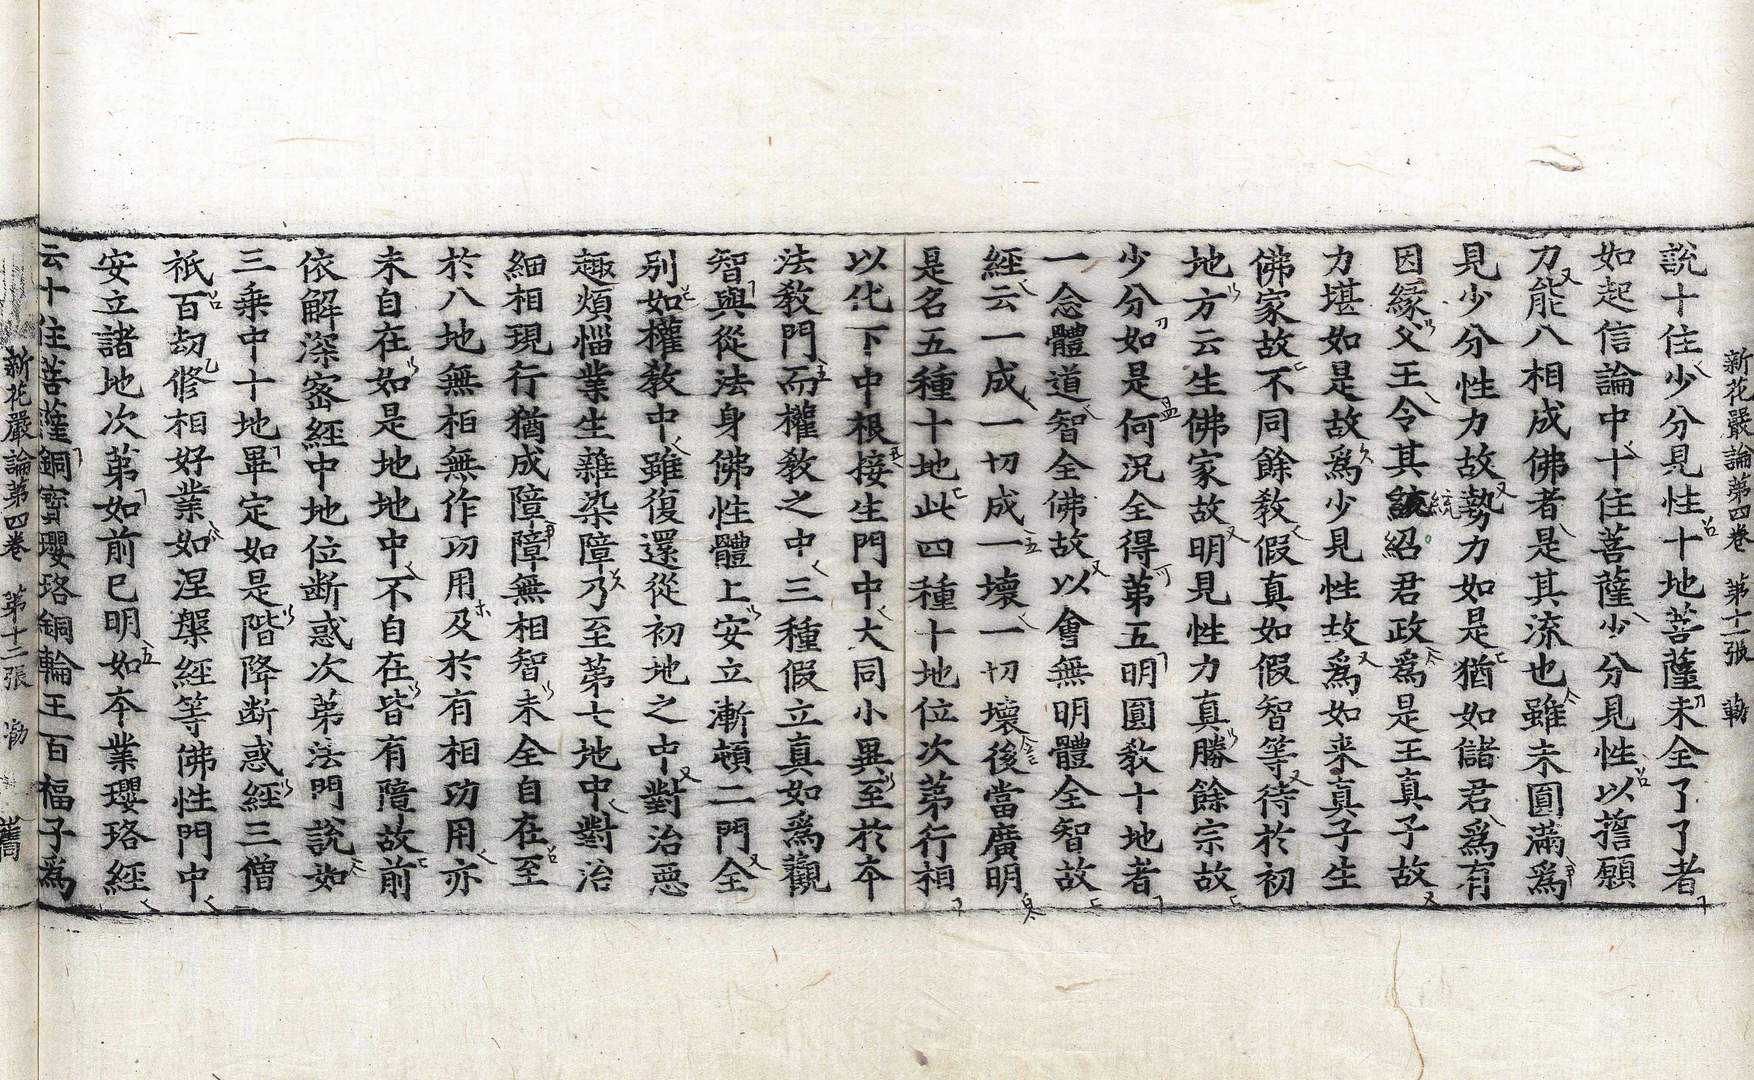 新花嚴論第四卷 第十一張 勒
說十住少分見性十地菩薩未全了了者
如起信論中十住菩薩少分見性以誓願
力能八相成佛者是其流也雖未圓滿爲
見少分性力故勢力如是猶如儲君爲有
因緣父王令其統紹君政爲是王真子故
力堪如是故爲少見性故爲如来真子生
佛家故不同餘教假真如假智等待於初
地方云生佛家故明見性力真勝餘宗故
少分如是何況全得第五明圓教十地者
一念體道智全佛故以會無明體全智故
經云一成一切成一壞一切壞後當廣明
是名五種十地此四種十地位次第行相
以化下中根接生門中大同小異至於夲
法教門而權教之中三種假立真如爲觀
智與從法身佛性體上安立漸頓二門全
别如權教中雖復還從初地之中對治惡
趣煩惱業生雜染障乃至第七地中對治
細相現行猶成障障無相智未全自在至
於八地無相無作功用及於有相功用亦
未自在如是地地中不自在皆有障故前
依解深密經中地位斷惑次第法門說如
三乘中十地畢定如是階降斷惑經三僧
祇百劫修相好業如涅槃經等佛性門中
安立諸地次第如前已明如夲業瓔珞經
云十住菩薩銅寶瓔珞銅輪王百福子爲
新花嚴論第四卷 第十二張 勒